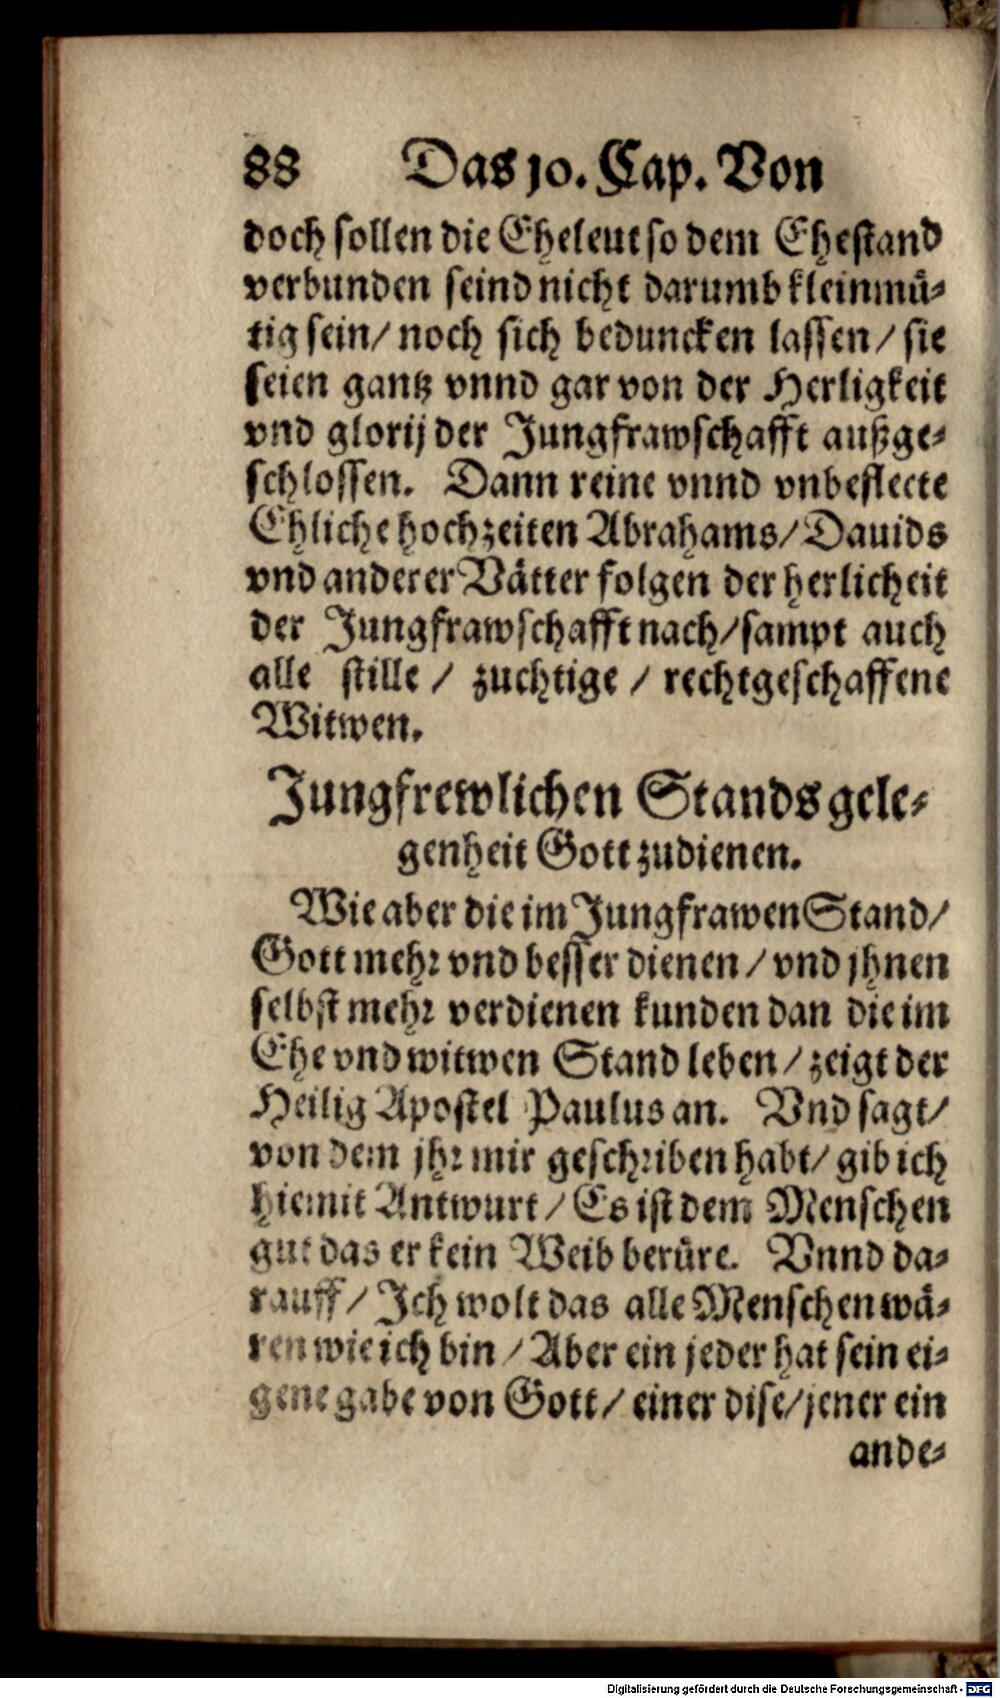 88 Das 10. Cap. Von
doch sollen die Eheleut so dem Ehestand
verbunden seind nicht darumb kleinmü-
tig sein/ noch sich beduncken lassen/ sie
seien gantz vnnd gar von der Herligkeit
vnd glorij der Jungfrawschafft außge-
schlossen. Dann reine vnnd vnbeflecte
Ehliche hochzeiten Abrahams/ Dauids
vnd anderer Vätter folgen der herlicheit
der Jungfrawschafft nach/ sampt auch
alle stille / zuchtige / rechtgeschaffene
Witwen.
Jungfrewlichen Stands gele-
genheit Gott zudienen.
Wie aber die im Jungfrawen Stand/
Gott mehr vnd besser dienen / vnd jhnen
selbst mehr verdienen kunden dan die im
Ehe vnd witwen Stand leben / zeigt der
Heilig Apostel Paulus an. Vnd sagt/
von dem jhr mir geschriben habt/ gib ich
hiemit Antwurt / Es ist dem Menschen
gut das er kein Weib berüre. Vnnd da-
rauff/ Ich wolt das alle Menschen wä-
ren wie ich bin / Aber ein jeder hat sein ei-
gene gabe von Gott/ einer dise/ jener ein
ande-
Digitalisierung gefördert durch die Deutsche Forschungsgemeinschaft - DFG